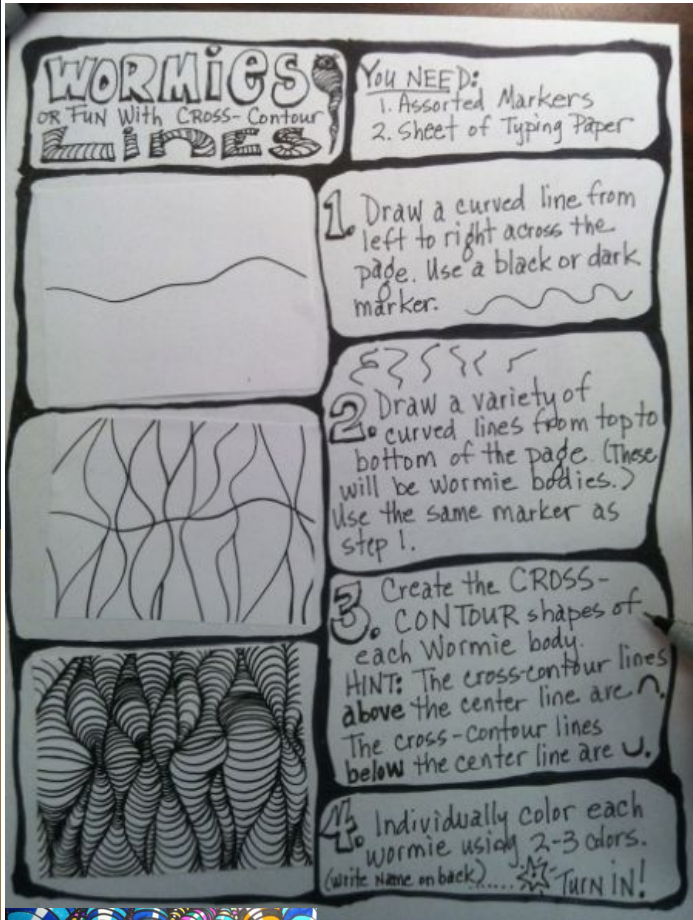 WORMIES
OR FUN With CROSS-Contour
LINES
YOU NEED:
1. Assorted Markers
2. Sheet of Typing Paper
1. Draw a curved line from
left to right across the
page. Use a black or dark
marker.
2. Draw a variety of
curved lines from top to
bottom of the page. (These
will be wormie bodies.)
Use the same marker as
step 1.
3. Create the CROSS-
CONTOUR shapes of
each Wormie body.
HINT: The cross-contour lines
above the center line are ∩.
The cross-contour lines
below the center line are ∪.
4. Individually color each
wormie using 2-3 colors.
(Write Name on back)...... TURN IN!